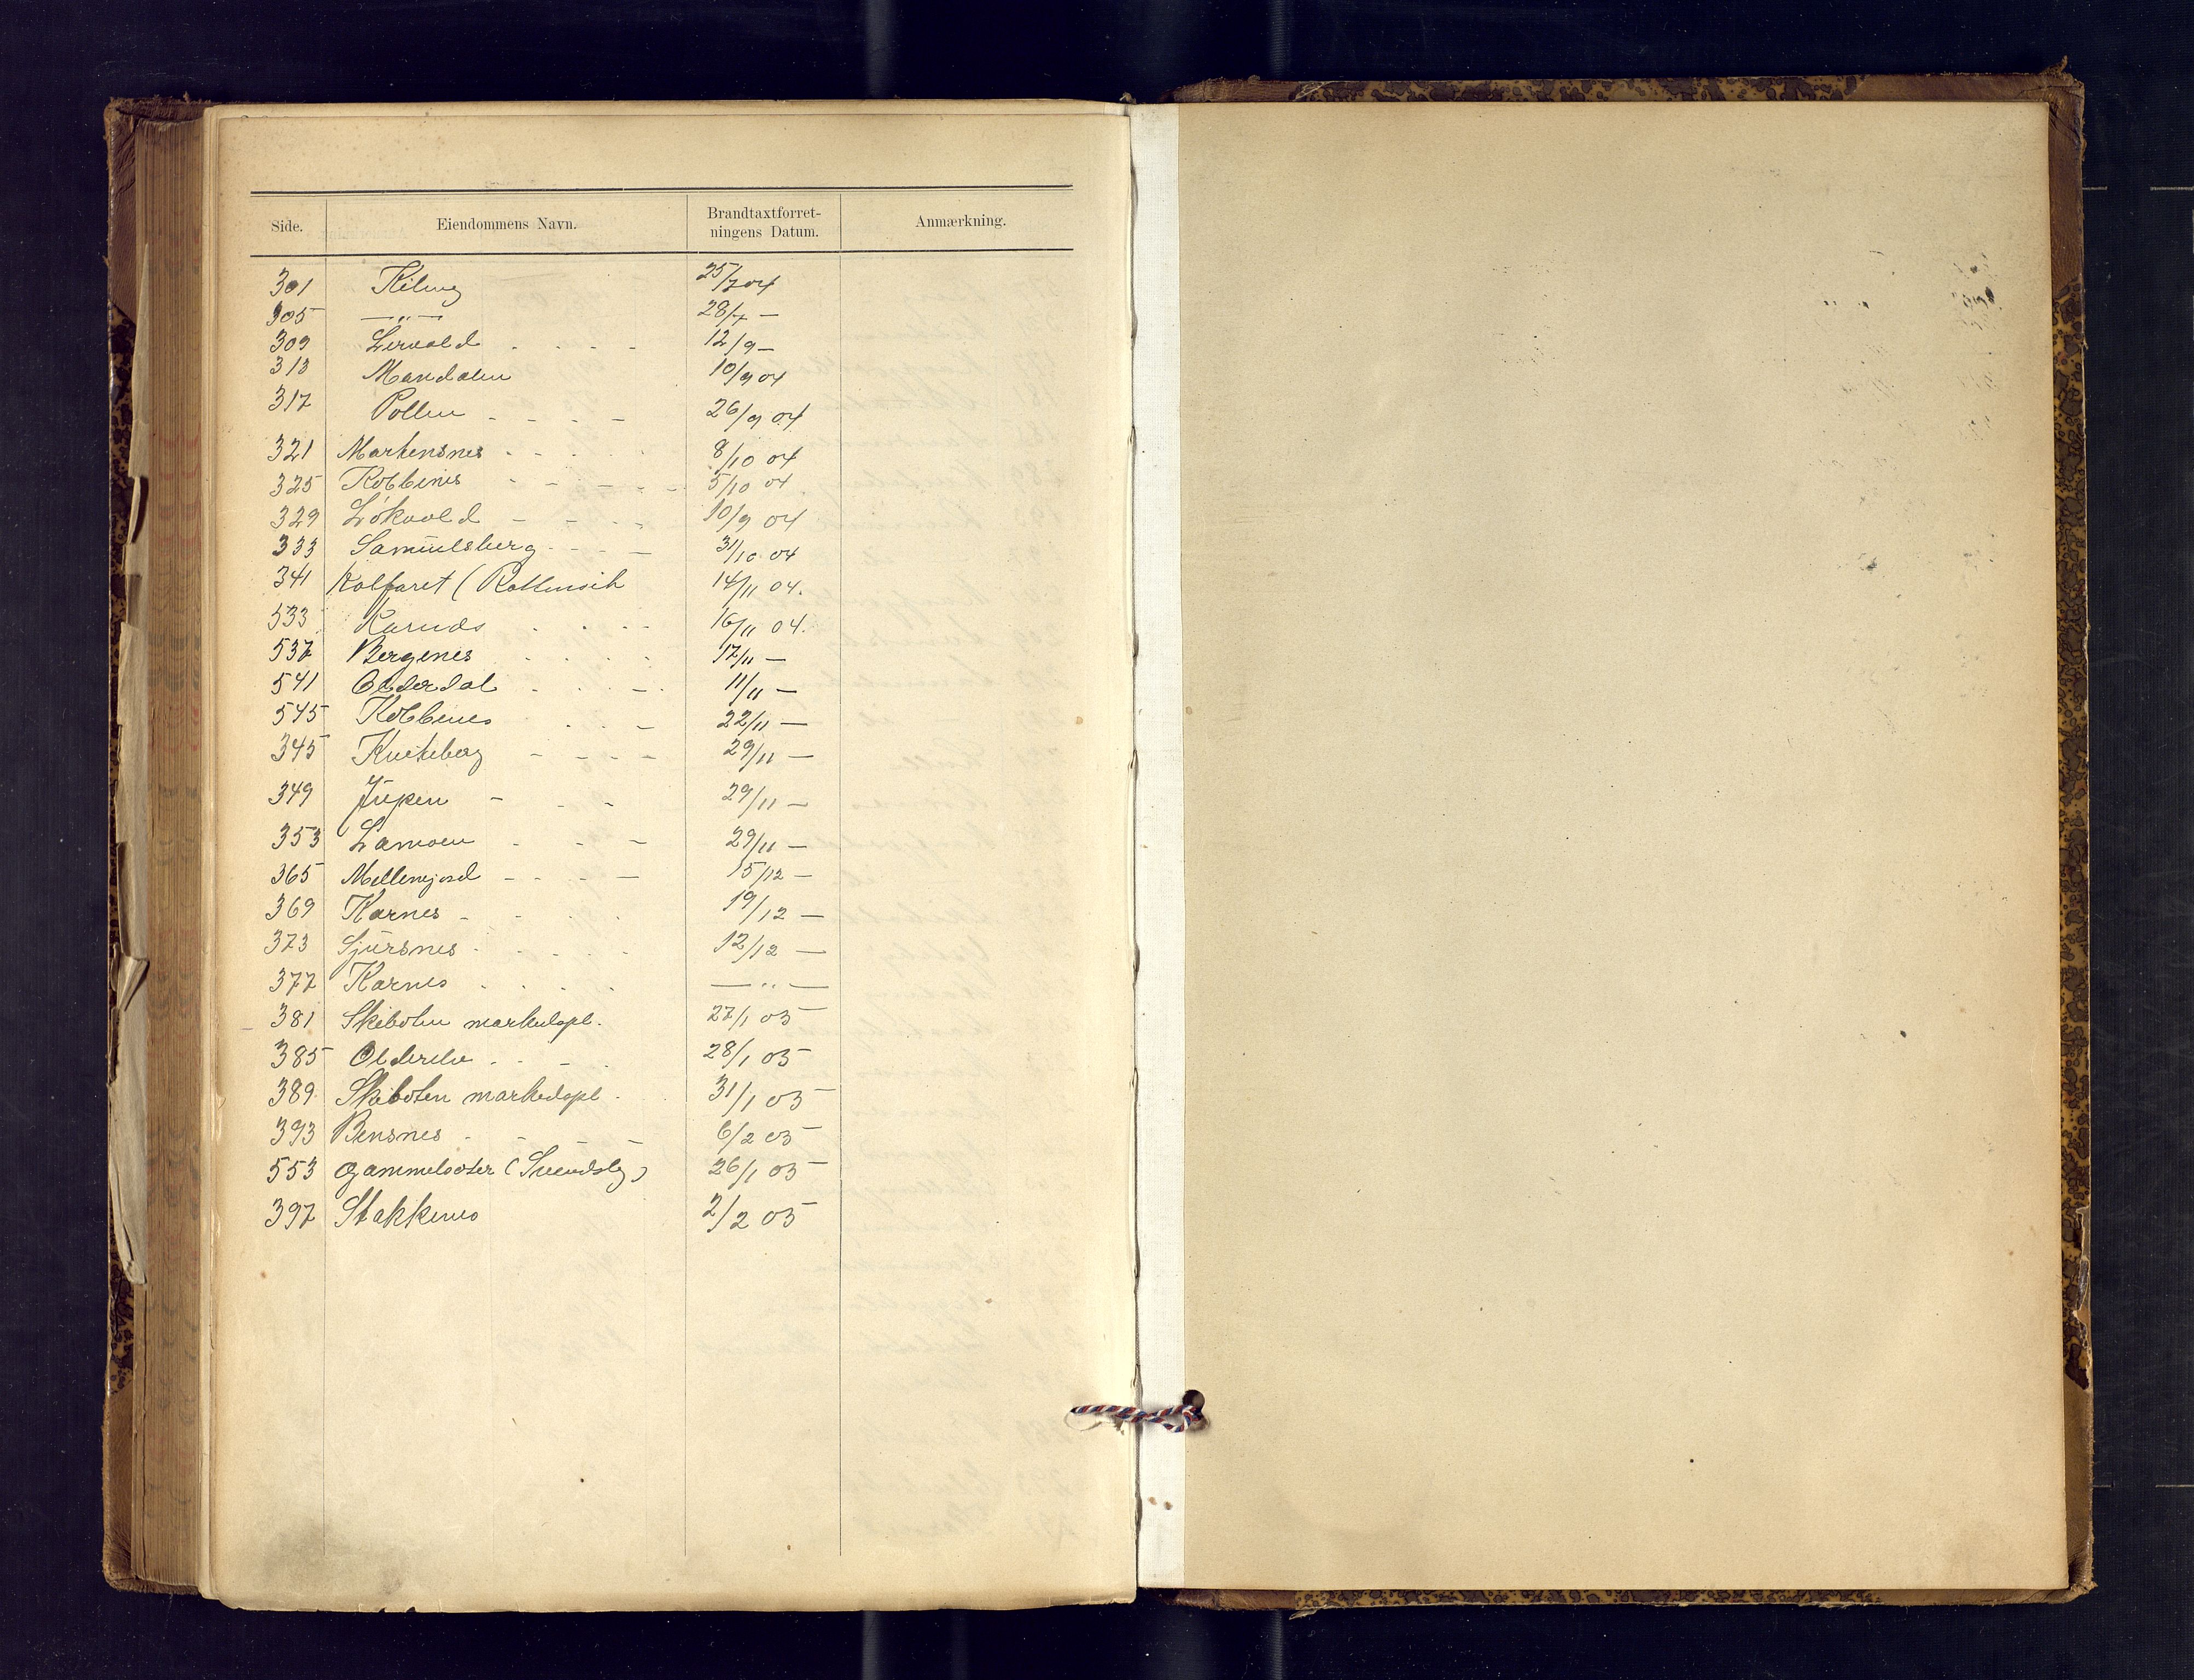 Side. Eiendommens Navn. Brandtaxtforret- Anmærkning.
ningens Datum.
301 Kileng 25/7 04
305 —„— 28/7 —
309 Lervold 12/9 —
313 Mandalen 10/9 04
317 Pollen 26/9 04
321 Martensnes 8/10 04
325 Kobbenes 5/10 04
329 Lökvold 10/9 04
333 Samuelsberg 31/10 04
341 Kalfaret ( 14/11 04.
533 Karnæs 16/11 04.
537 Bergenes 17/11 —
541 Olderdal 11/11 —
545 Kobbenes 22/11 —
345 Kveteberg 29/11 —
349 29/11 —
353 Lamoen 29/11 —
365 Mellemjord 15/12 —
369 Karnes 19/12 —
373 Sjursnes 12/12 —
377 Karnes —„—
381 Skiboten markedspl. 27/1 05
385 Olderelv 28/1 05
389 Skiboten markedspl 31/1 05
393 Bensnes 6/2 05
553 Gammelsæter (Svendsby) 26/1 05
397 Stakkenes 2/2 05